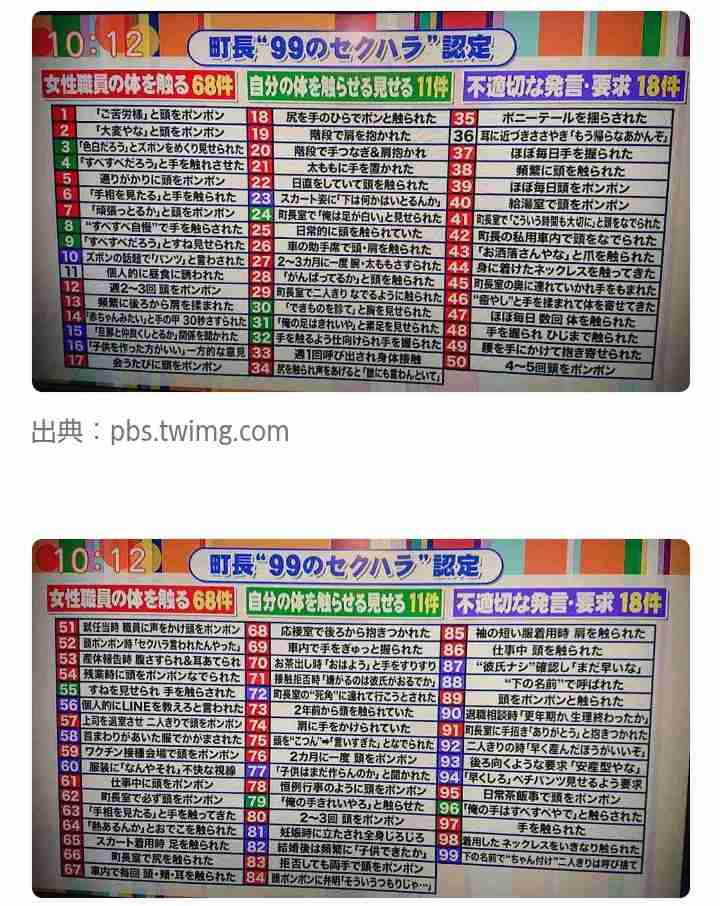 10:12
町長“99のセクハラ”認定
女性職員の体を触る 68件
自分の体を触らせる見せる 11件
不適切な発言・要求 18件
1 「ご苦労様」と頭をポンポン
2 「大変やな」と頭をポンポン
3 「色白だろう」とズボンをめくり見せられた
4 「すべすべだろう」と手を触れさせた
5 通りがかりに頭をポンポン
6 「手相を見たる」と手を触られた
7 「頑張っとるか」と頭をポンポン
8 “すべすべ自慢”で手を触らされた
9 「すべすべだろう」とすね見せられた
10 ズボンの話題で「パンツ」と言わされた
11 個人的に昼食に誘われた
12 週2〜3回 頭をポンポン
13 頻繁に後ろから肩を揉まれた
14 「赤ちゃんみたい」と手の甲 30秒さすられた
15 「旦那と仲良くしとるか」関係を聞かれた
16 「子供を作った方がいい」一方的な意見
17 会うたびに頭をポンポン
18 尻を手のひらでポンと触られた
19 階段で肩を抱かれた
20 階段で手つなぎ&肩抱かれ
21 太ももに手を置かれた
22 日直をしていて頭を触られた
23 スカート姿に「下は何かはいとるんか」
24 町長室で「俺は足が白い」と見せられた
25 日常的に頭を触られていた
26 車の助手席で頭・肩を触られた
27 2〜3カ月に一度 腕・太ももさすられた
28 「がんばってるか」と頭を触られた
29 町長室で二人きり なでるように触られた
30 「できものを診て」と胸を見せられた
31 「俺の足はきれいや」と素足を見せられた
32 手を触るよう仕向けられ手を触られた
33 週1回呼び出され身体接触
34 尻を触られ声をあげると「誰にも言わんといて」
35 ポニーテールを揺らされた
36 耳に近づきささやき「もう帰らなあかんぞ」
37 ほぼ毎日手を握られた
38 頻繁に頭を触られた
39 ほぼ毎日頭をポンポン
40 給湯室で頭をポンポン
41 町長室で「こういう時間も大切に」と頭をなでられた
42 町長の私用車内で頭をなでられた
43 「お洒落さんやな」と爪を触られた
44 身に着けたネックレスを触ってきた
45 町長室の奥に連れていかれ手をもまれた
46 “癒やし”と手を揉まれて体を寄せてきた
47 ほぼ毎日 数回 体を触られた
48 手を握られ ひじまで触られた
49 腰を手にかけて抱き寄せられた
50 4〜5回頭をポンポン
出典：pbs.twimg.com
10:12
町長“99のセクハラ”認定
女性職員の体を触る 68件
自分の体を触らせる見せる 11件
不適切な発言・要求 18件
51 就任当時 職員に声をかけ頭をポンポン
52 頭ポンポン時「セクハラ言われたんやった」
53 産休報告時 腹さすられ&耳あてられ
54 残業時に頭をポンポンなでられた
55 すねを見せられ 手を触らされた
56 個人的にLINEを教えろと言われた
57 上司を退室させ 二人きりで頭をポンポン
58 首まわりがあいた服でかがまされた
59 ワクチン接種会場で頭をポンポン
60 服装に「なんやそれ」不快な視線
61 仕事中に頭をポンポン
62 町長室で必ず頭をポンポン
63 「手相を見たる」と手を触ってきた
64 「熱あるんか」とおでこを触られた
65 スカート着用時 足を触られた
66 町長室で尻を触られた
67 車内で毎回 頭・頬・耳を触られた
68 応接室で後ろから抱きつかれた
69 車内で手をぎゅっと握られた
70 お茶出し時「おはよう」と手をすりすり
71 接触拒否時「嫌がるのは彼氏がおるでか」
72 町長室の“死角”に連れて行こうとされた
73 2年前から頭を触られていた
74 肩に手をかけられていた
75 頭を“こつん”➡“賢いすぎた”となでられた
76 2カ月に一度 頭をポンポン
77 「子供はまだ作らんのか」と聞かれた
78 恒例行事のように頭をポンポン
79 「俺の手きれいやろ」と触らせた
80 2〜3回 頭をポンポン
81 妊娠時に立たされ全身じろじろ
82 結婚後は頻繁に「子供できたか」
83 拒否しても両手で頭をポンポン
84 頭ポンポンに弁明「そういうつもりじゃ…」
85 袖の短い服着用時 肩を触られた
86 仕事中 頭を触られた
87 “彼氏ナシ”確認し「まだ早いな」
88 “下の名前”で呼ばれた
89 頭をポンポンと触られた
90 退職相談時「更年期か、生理終わったか」
91 町長室に手招き「ありがとう」と抱きつかれた
92 二人きりの時「早く産んだほうがいいぞ」
93 後ろ向くよう要求「安産型やな」
94 「早くしろ」ペチパンツ見せるよう要求
95 日常茶飯事で頭をポンポン
96 「俺の手はすべすべやで」と触らされた
97 手を触られた
98 着用した ネックレスをいきなり触られた
99 下の名前で“ちゃん付け”二人きりは呼び捨て